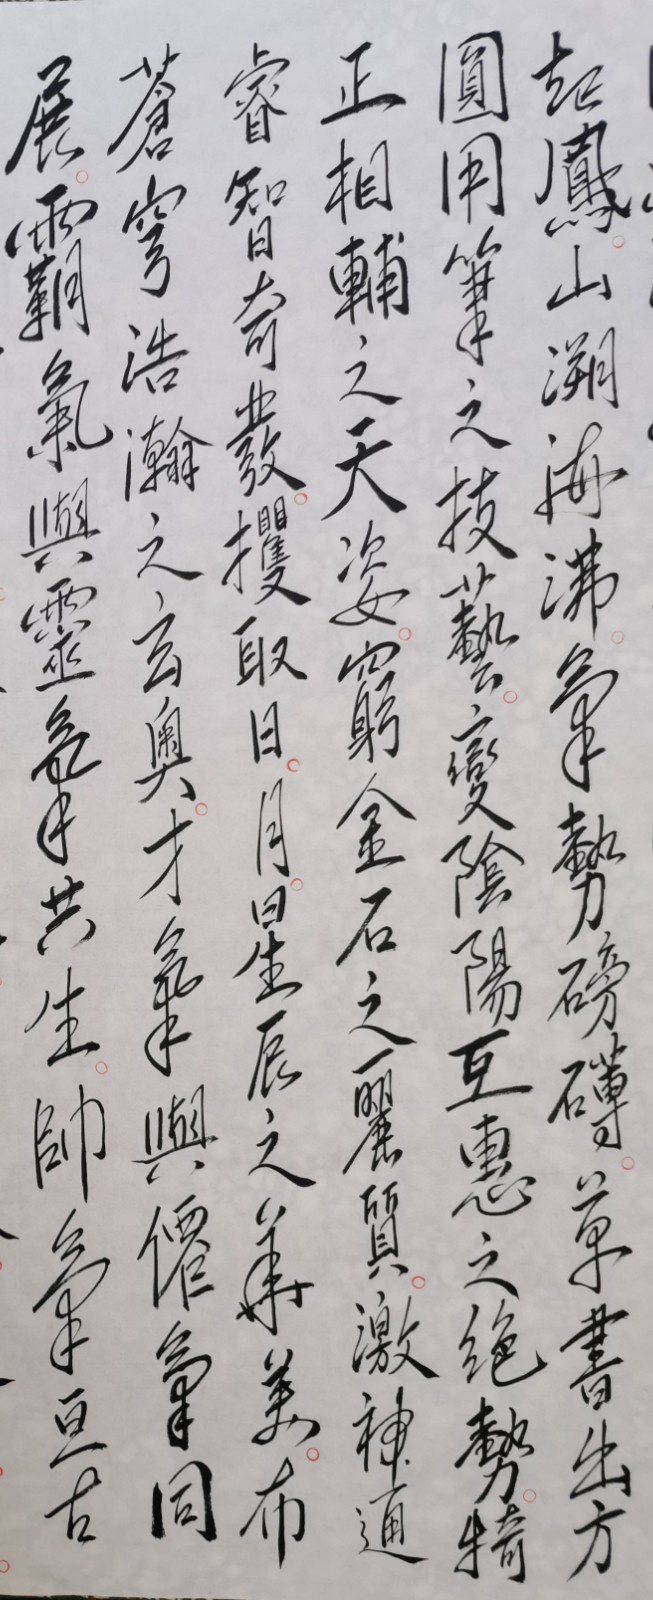 起鳳。山溯海沸。氣勢磅礴。草書出方
圓用筆之技藝。變陰陽互惠之絕勢。犄
正相輔之天姿。窮金石之麗質。激神通
睿智奇發。攫取日。月。星辰之華美。布
蒼穹浩瀚之玄奧。才氣與僊氣同
展。霸氣與靈氣共生。帥氣亘古